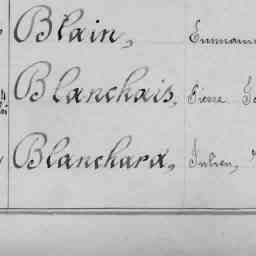 Blain,
Blanchais, Pierre
Blanchard, Julien,